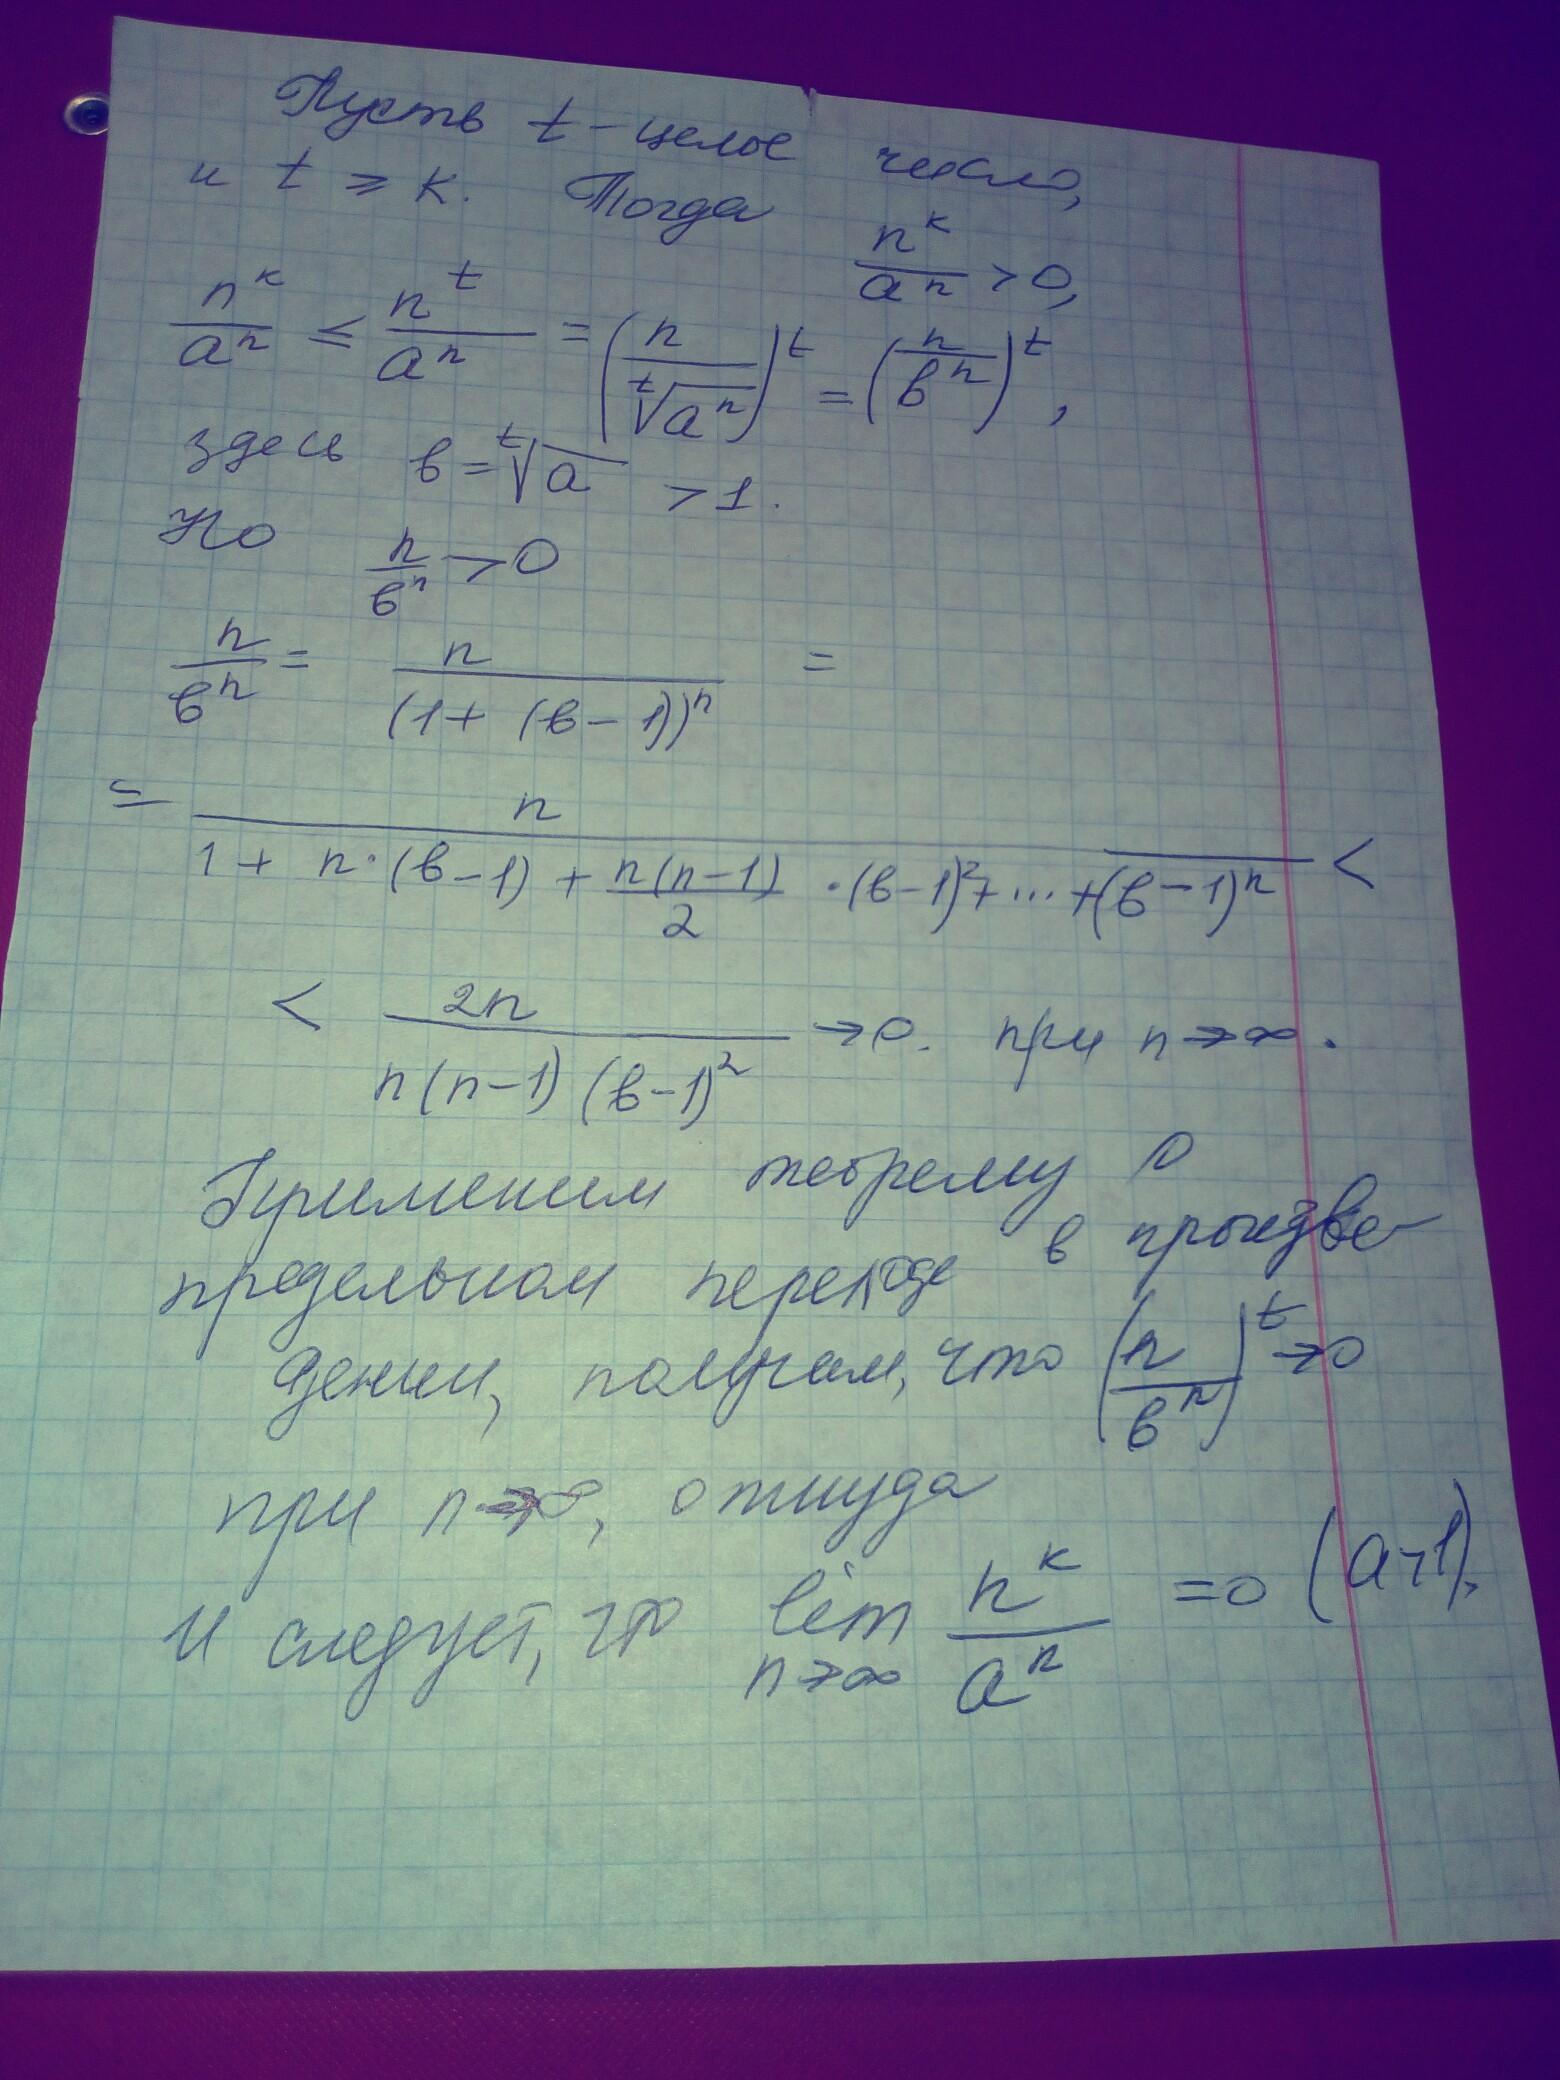 Пусть t - целое число,
и t ⩾ к. Тогда n^к/a^n > 0,
n^к/a^n ≤ n^t/a^n = (n/ᵗ√(a^n))^t = (n/в^n)^t,
здесь в = ᵗ√a > 1.
Но n/в^n > 0
n/в^n = n/(1 + (в - 1))^n =
= n/(1 + n·(в-1) + n(n-1)/2 ·(в-1)^2 + ... + (в-1)^n) <
< 2n/(n(n-1)(в-1)^2) → 0. при n → ∞.
Применим теорему о
предельном переходе в произве-
дении, получам, что (n/в^n)^t → 0
при n → ∞, откуда
и следует, что lim n→∞ n^к/a^n = 0 (a > 1).